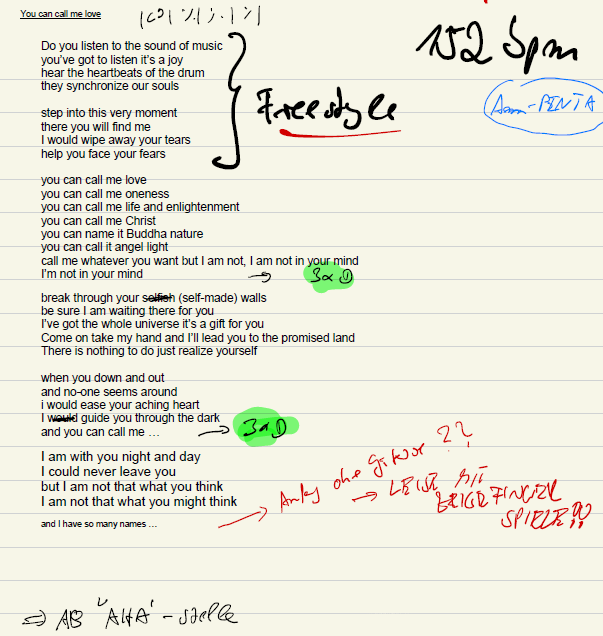 You can call me love
152 bpm
Do you listen to the sound of music
you've got to listen it's a joy
hear the heartbeats of the drum
they synchronize our souls
Freestyle
step into this very moment
there you will find me
I would wipe away your tears
help you face your fears
you can call me love
you can call me oneness
you can call me life and enlightenment
you can call me Christ
you can name it Buddha nature
you can call it angel light
call me whatever you want but I am not, I am not in your mind
I'm not in your mind → 3x D
break through your selfish (self-made) walls
be sure I am waiting there for you
I've got the whole universe it's a gift for you
Come on take my hand and I'll lead you to the promised land
There is nothing to do just realize yourself
when you down and out
and no-one seems around
i would ease your aching heart
I would guide you through the dark
and you can call me … → 3x D
I am with you night and day
I could never leave you
but I am not that what you think
I am not that what you might think
and I have so many names …
→ Anfang ohne Gitarre ??
→ LEISE MIT
ZEIGEFINGER
SPIELEN!!
⇒ AB "AHA" - stelle